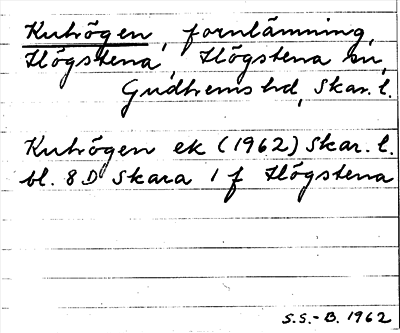 Kuhögen, fornlämning,
Högstena, Högstena sn,
Gudhems hd, Skar. l.
Kuhögen ek (1962) Skar. l.
bl. 8 D Skara 1 f Högstena
S.S.-B. 1962